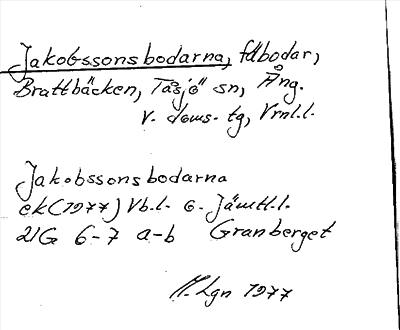 Jakobssonsbodarna, fäbodar,
Brattbäcken, Tåsjö sn, Ång.
v. doms. tg, Vrml.l.
Jakobssonsbodarna
ek (1977) Vb.l. o. Jämtl.l.
21G 6-7 a-b Granberget
Lgn 1977